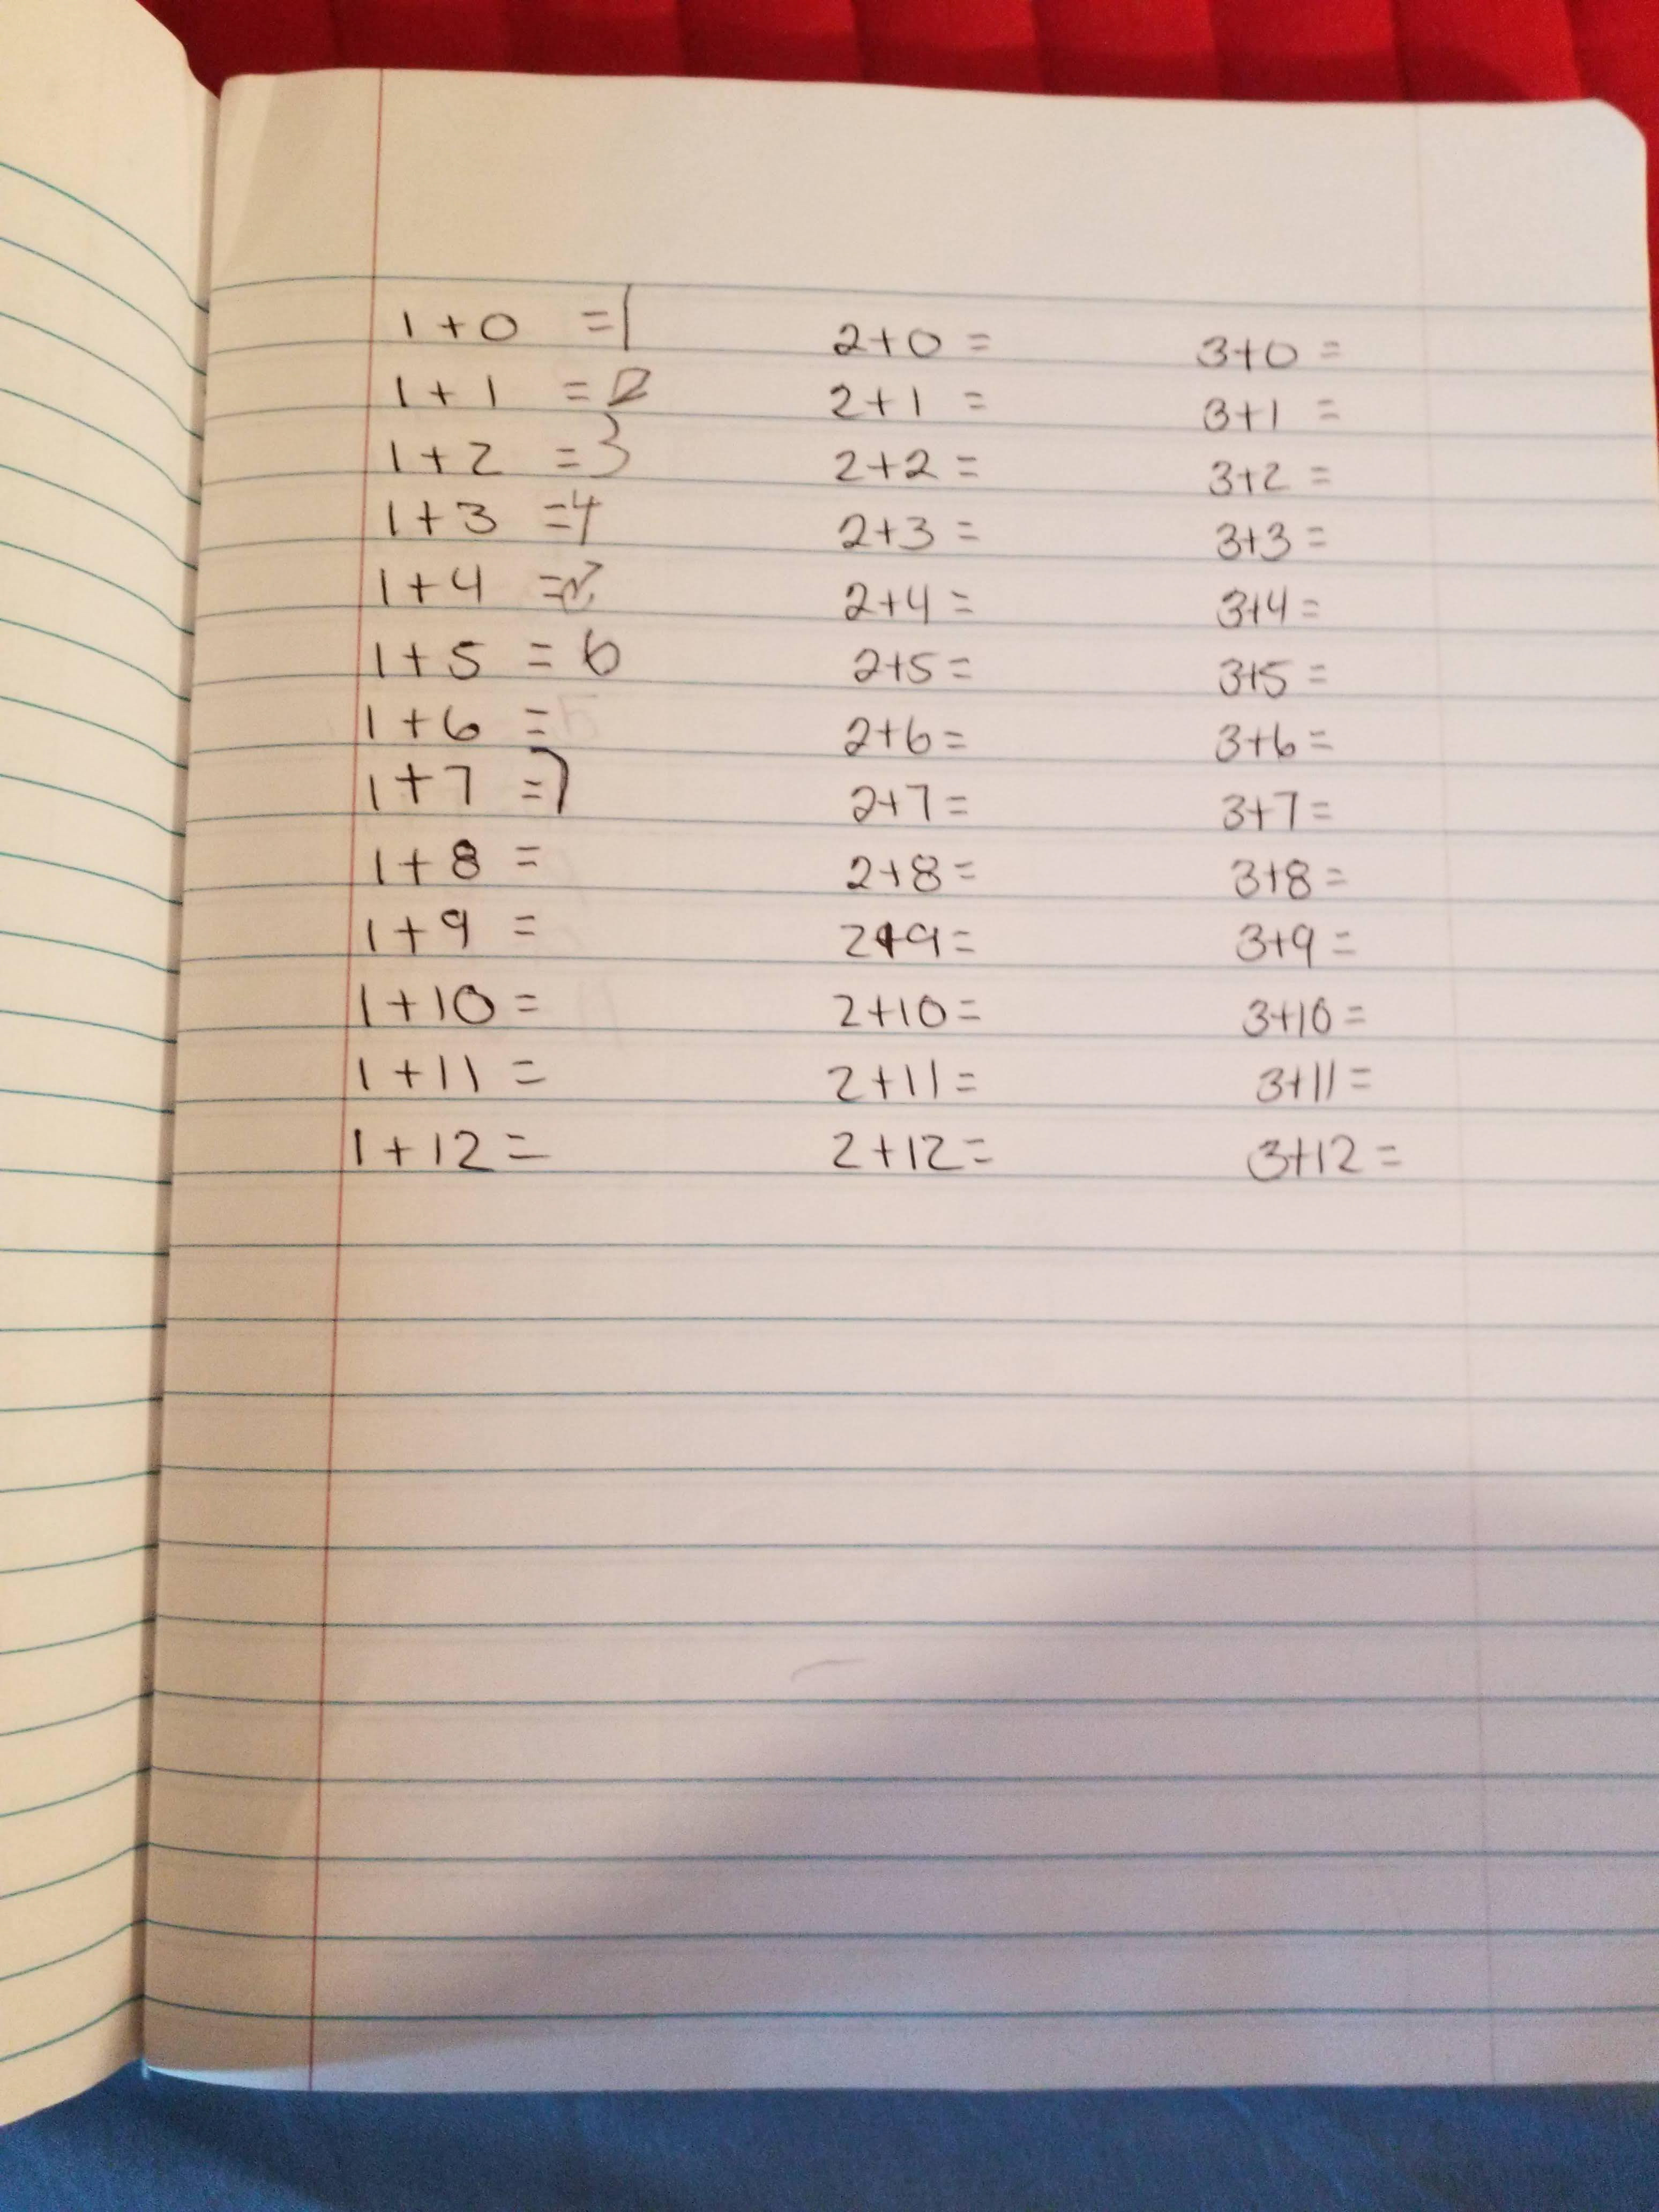 1+0 =1 2+0= 3+0=
1+1 =2 2+1 = 3+1 =
1+2 =3 2+2= 3+2=
1+3 =4 2+3= 3+3=
1+4 = 2+4= 3+4=
1+5 =6 2+5= 3+5=
1+6 = 2+6= 3+6=
1+7 =7 2+7= 3+7=
1+8 = 2+8= 3+8=
1+9 = 2+9= 3+9=
1+10= 2+10= 3+10=
1+11= 2+11= 3+11=
1+12= 2+12= 3+12=